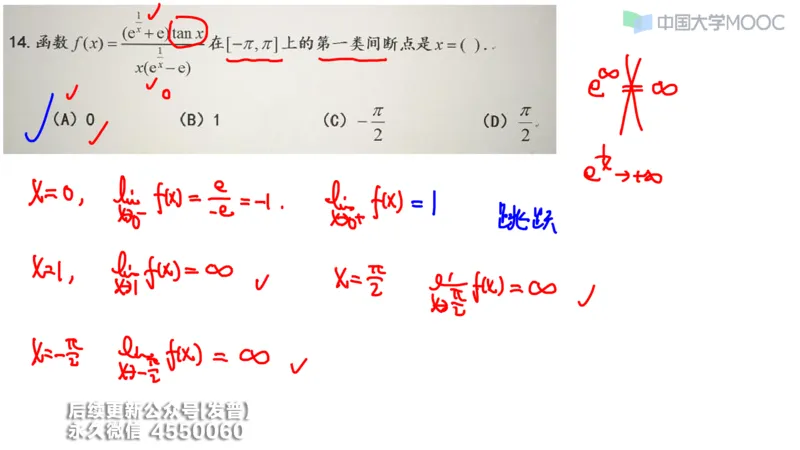 中国大学MOOC
14. 函数 f(x) = (e^{1/x} + e) tan x / x(e^{1/x} − e) 在 [−π, π] 上的第一类间断点是 x = ( ).
0
(A) 0 (B) 1 (C) −π/2 (D) π/2
e^∞ ∞
e^{1/x} → +∞
x=0, lim x→0⁻ f(x) = e/−e = −1. lim x→0⁺ f(x) = 1 跳跃
x=1, lim x→1 f(x) = ∞ ✓ x = π/2 lim x→π/2 f(x) = ∞ ✓
x=−π/2 lim x→−π/2 f(x) = ∞ ✓
后续更新公众号(发普)
永久微信 4550060